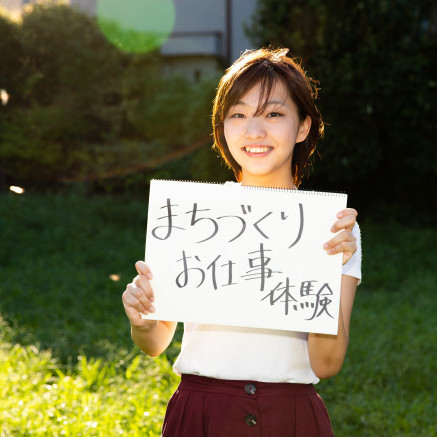 まちづくり
お仕事
体験